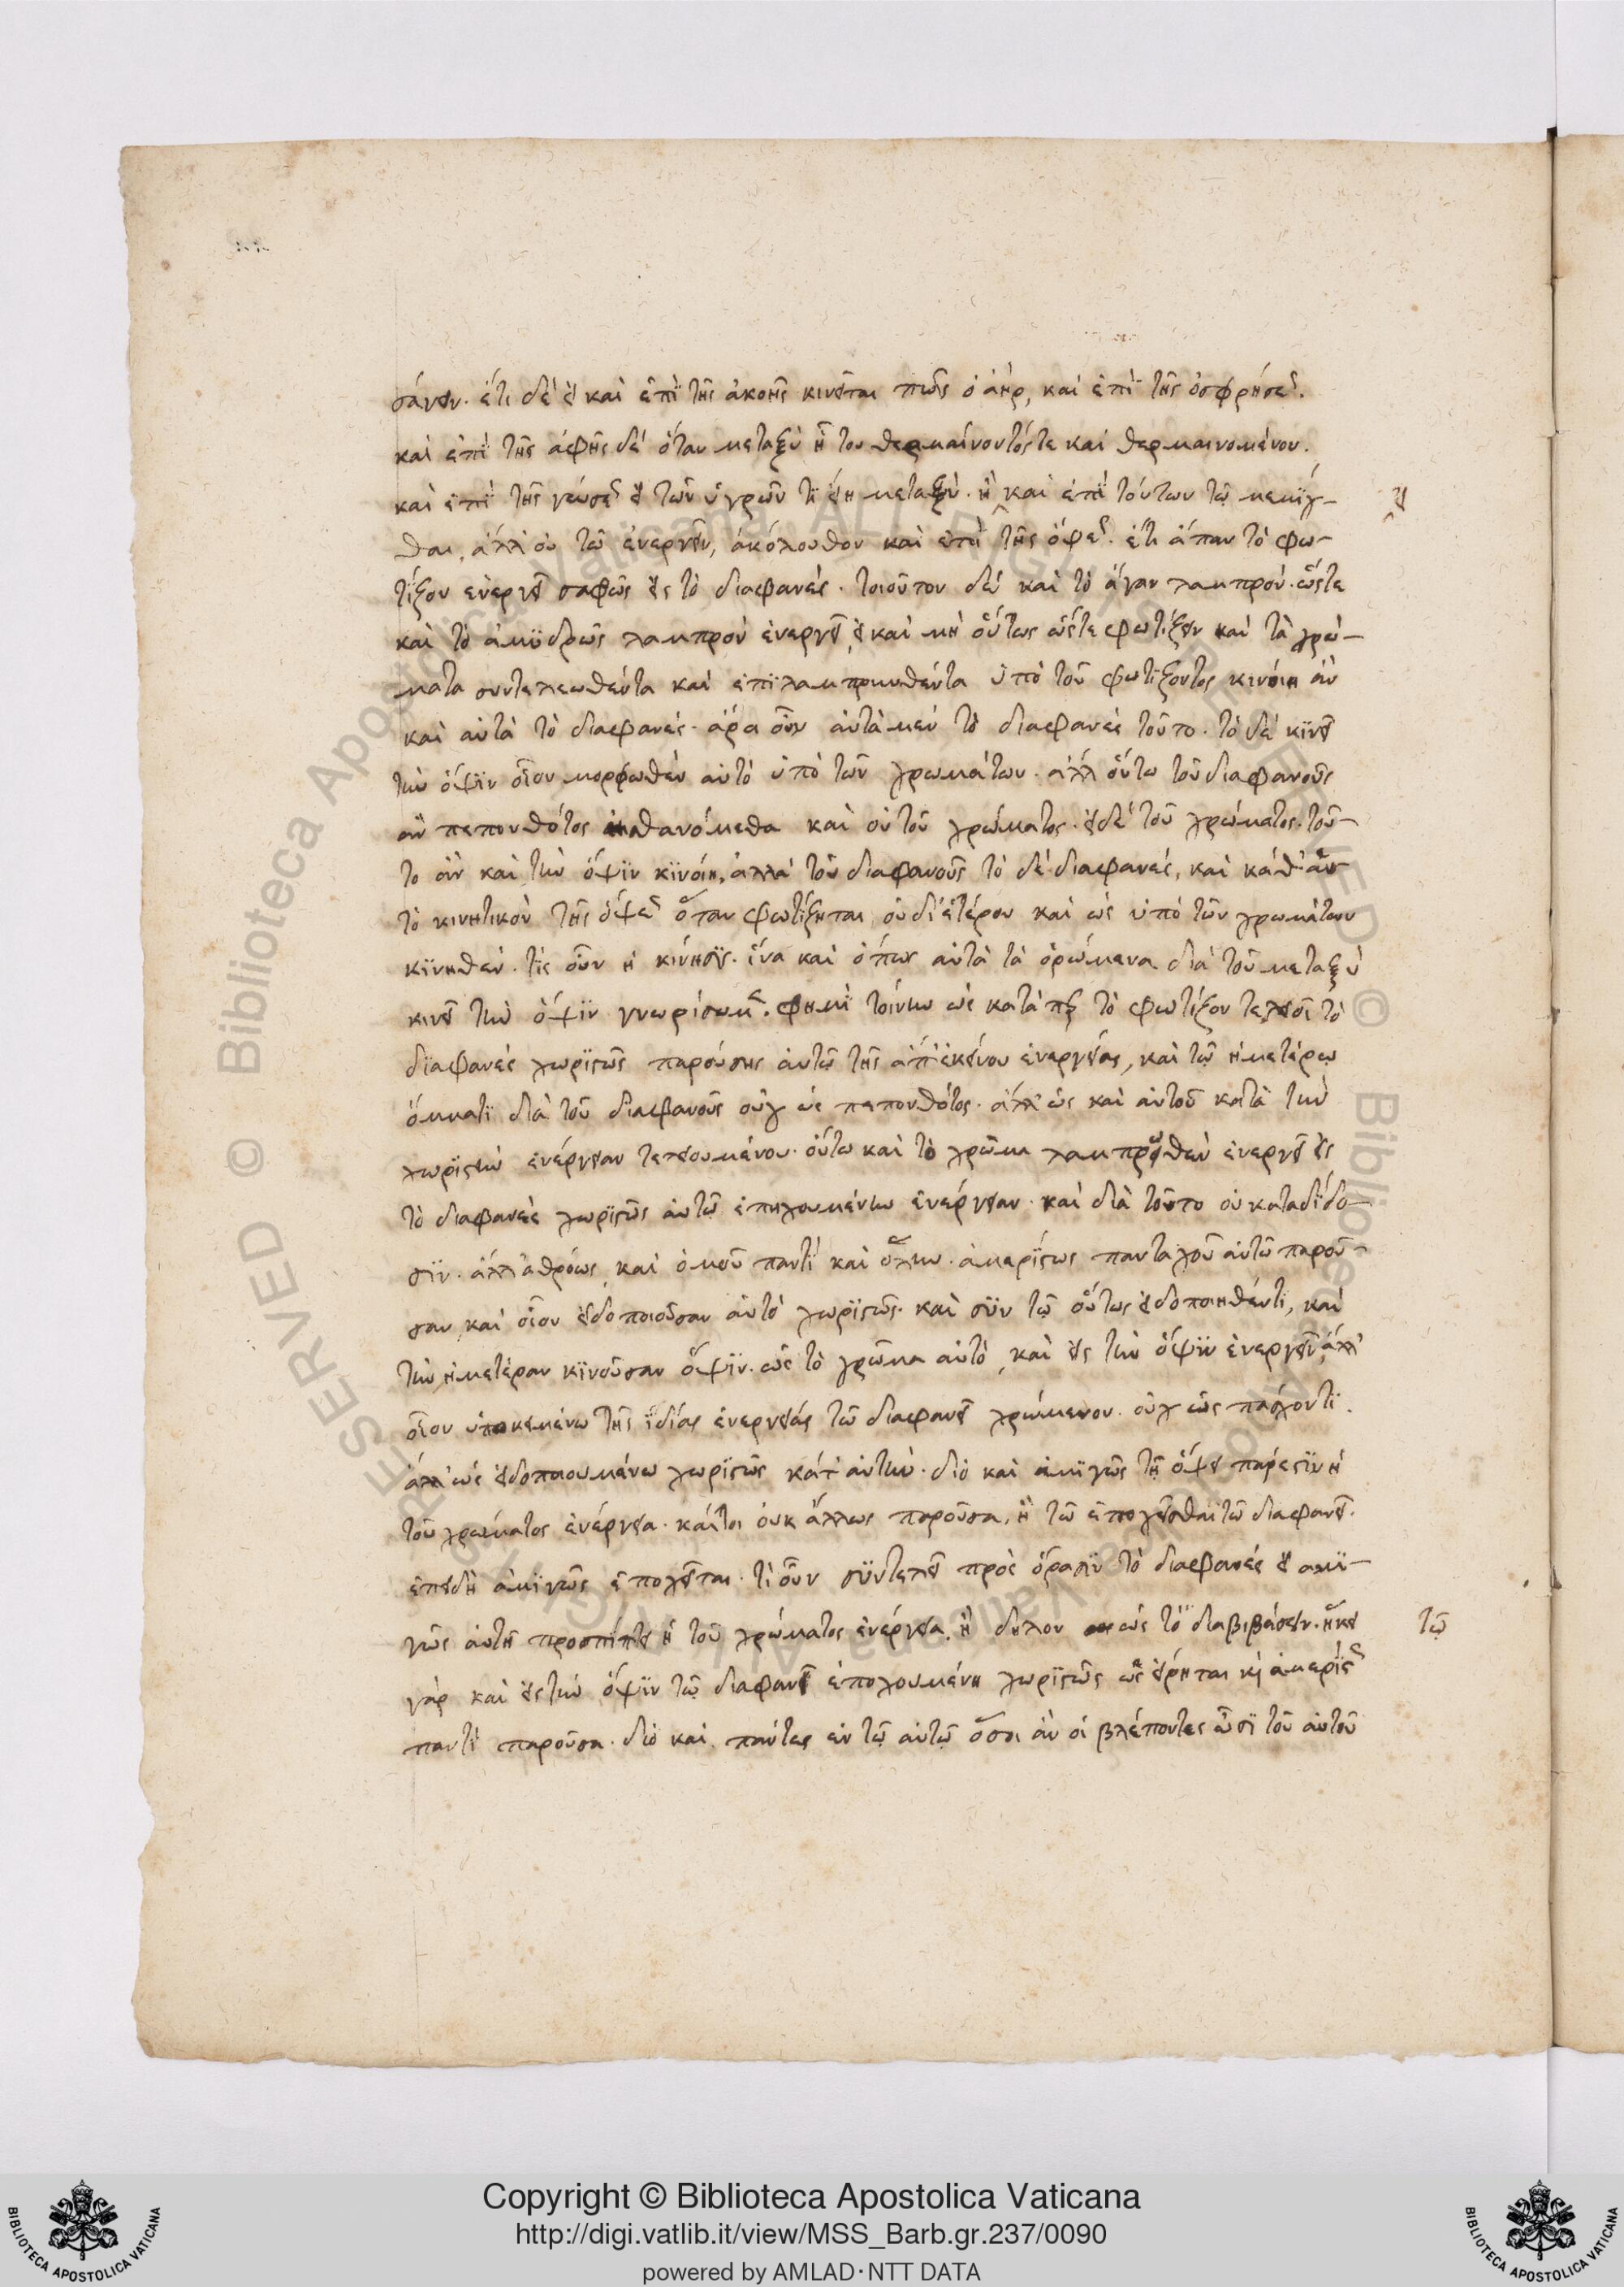 σάγειν. ἔτι δὲ εἰ καὶ ἐπὶ τῆς ἀκοῆς κινεῖται πως ὁ ἀὴρ, καὶ ἐπὶ τῆς ὀσφρήσεως.
καὶ ἐπὶ τῆς ἁφῆς δὲ ὅταν μεταξὺ ἦ του θερμαίνοντός τε καὶ θερμαινομένου.
καὶ ἐπὶ τῆς γεύσεως εἰ τῶν ὑγρῶν τι εἴη μεταξύ. ἢ καὶ ἐπὶ τούτων τῷ μεμίχ-
θαι, ἀλλ' οὐ τῶ ἐνεργεῖν, ἀκόλουθον καὶ ἐπὶ τῆς ὄψεως. ἔτι ἅπαν τὸ φω-
τίζον ἐνεργεῖ σαφῶς εἰς τὸ διαφανές. τοιοῦτον δὲ καὶ τὸ ἄγαν λαμπρόν. ὥστε
καὶ τὸ ἀμυδρῶς λαμπρὸν ἐνεργεῖ, εἰ καὶ μὴ οὕτως ὥστε φωτίζειν καὶ τὰ χρώ-
ματα συντελεωθέντα καὶ ἐπιλαμπρυνθέντα ὑπὸ τοῦ φωτίζοντος κινοίη ἂν
καὶ αὐτὰ τὸ διαφανές. ἆρα οὖν αὐτὰ μὲν τὸ διαφανὲς τοῦτο. τὸ δὲ κινεῖ
τὴν ὄψιν οἷον μορφωθὲν αὐτὸ ὑπὸ τῶν χρωμάτων. ἀλλ' οὕτω τοῦ διαφανοῦς
ἂν πεπονθότος αἰσθανόμεθα καὶ οὐ τοῦ χρώματος. εἰ δὲ τοῦ χρώματος. τοῦ-
το ἂν καὶ τὴν ὄψιν κινοίη, ἀλλὰ τοῦ διαφανοῦς τὸ δὲ διαφανές, καὶ καθ' αὑ-
τὸ κινητικὸν τῆς ὄψεως ὅταν φωτίζηται οὐ δι' ἑτέρου καὶ ὡς ὑπὸ τῶν χρωμάτων
κινηθέν. τίς οὖν ἡ κίνησις. ἵνα καὶ ὅπως αὐτὰ τὰ ὁρώμενα διὰ τοῦ μεταξὺ
κινεῖ τὴν ὄψιν γνωρίσωμεν. φημὶ τοίνυν ὡς κατὰ περ τὸ φωτίζον τελειοῖ τὸ
διαφανὲς χωριστῶς παρούσης αὐτῶ τῆς ἀπ' ἐκείνου ἐνεργείας, καὶ τῷ ἡμετέρῳ
ὄμματι διὰ τοῦ διαφανοῦς οὐχ ὡς πεπονθότος. ἀλλ' ὡς καὶ αὐτοῦ κατὰ τὴν
χωριστὴν ἐνέργειαν τελειουμένου. οὕτω καὶ τὸ χρῶμα λαμπρυνθὲν ἐνεργεῖ εἰς
τὸ διαφανὲς χωριστῶς αὐτῷ ἐποχουμένην ἐνέργειαν. καὶ διὰ τοῦτο οὐ καταδίδο-
σιν. ἀλλ' ἀθρόως καὶ ὁμοῦ παντὶ καὶ ὅλην. ἀμερίστως πανταχοῦ αὐτῶ παροῦ-
σαν, καὶ οἷον εἰδοποιοῦσαν αὐτὸ χωριστῶς. καὶ σὺν τῷ οὕτως εἰδοποιηθέντι, καὶ
τὴν ἡμετέραν κινοῦσαν ὄψιν. ὡς τὸ χρῶμα αὐτό, καὶ εἰς τὴν ὄψιν ἐνεργεῖν, ἀλλ'
οἷον ὑποκειμένω τῆς ἰδίας ἐνεργείας τῶ διαφανεῖ χρώμενον. οὐχ ὡς πάσχοντι.
ἀλλ' ὡς εἰδοποιουμένω χωριστῶς κατ' αὐτήν. διὸ καὶ ἀμιγῶς τῇ ὄψει πάρεστιν ἡ
τοῦ χρώματος ἐνέργεια. καίτοι οὐκ ἄλλως παροῦσα, ἢ τῶ ἐποχεῖσθαι τῶ διαφανεῖ.
ἐπειδὴ ἀμιγῶς ἐποχεῖται. τί οὖν συντελεῖ πρὸς ὅρασιν τὸ διαφανὲς εἰ ἀμι-
γῶς αὐτῇ προσπίπτει ἡ τοῦ χρώματος ἐνέργεια, ἢ δηλον ὡς τὸ διαβιβάσειν. ἥκει
γὰρ καὶ εἰς τὴν ὄψιν τῷ διαφανεῖ ἐποχουμένη χωριστῶς ὡς εἴρηται κὶ ἀμερίστως
παντὶ παροῦσα. διὸ καὶ πάντες ἐν τῷ αὐτῷ ὅσοι ἂν οἱ βλέποντες ὦσι τοῦ αὐτοῦ
εἰ
τῷ
Copyright © Biblioteca Apostolica Vaticana
http://digi.vatlib.it/view/MSS_Barb.gr.237/0090
powered by AMLAD·NTT DATA